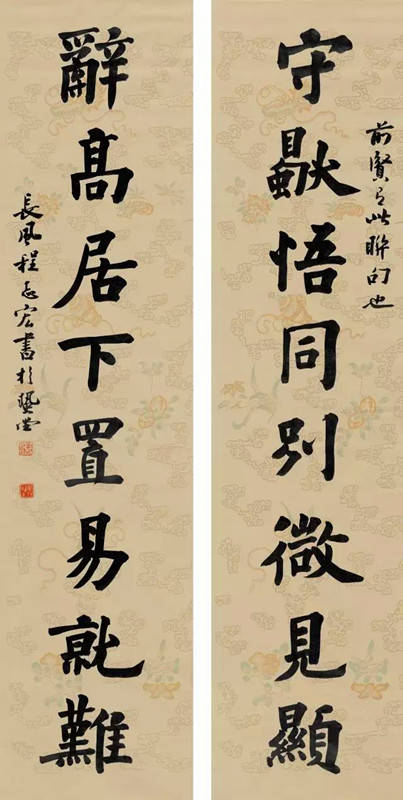 守默悟同別微見顯
前賢有此聯句也
辭高居下置易就難
長風程志宏書於藝堂